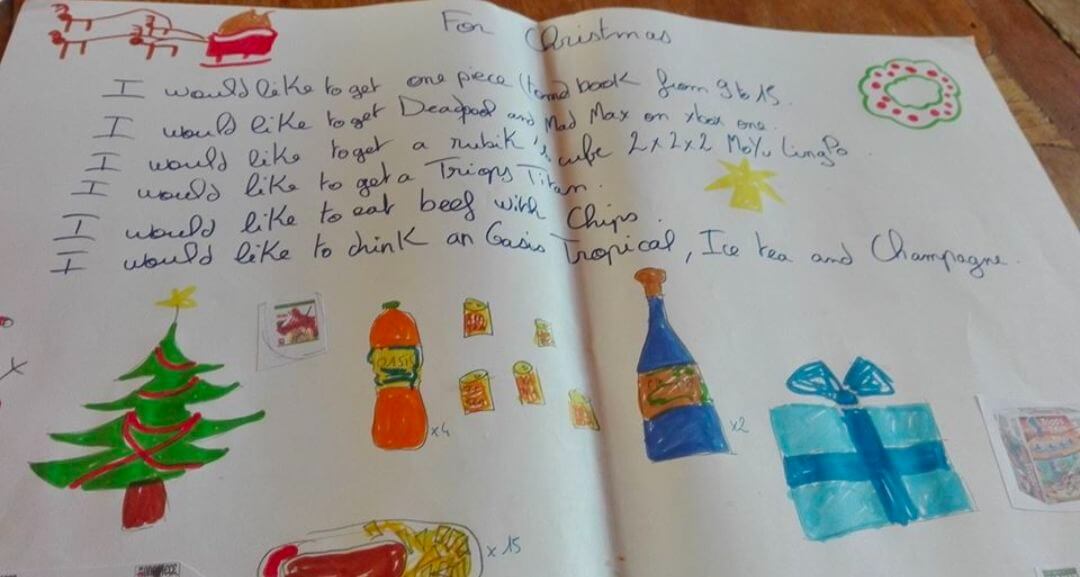 For Christmas
I would like to get one piece (tome) book from 9 to 15.
I would like to get Deadpool and Mad Max on xbox one.
I would like to get a rubik's cube 2x2x2 MoYu LingPo.
I would like to get a Triops Titan.
I would like to eat beef with Chips.
I would like to drink an Oasis Tropical, Ice tea and Champagne.
OASIS
x4
x2
x 15